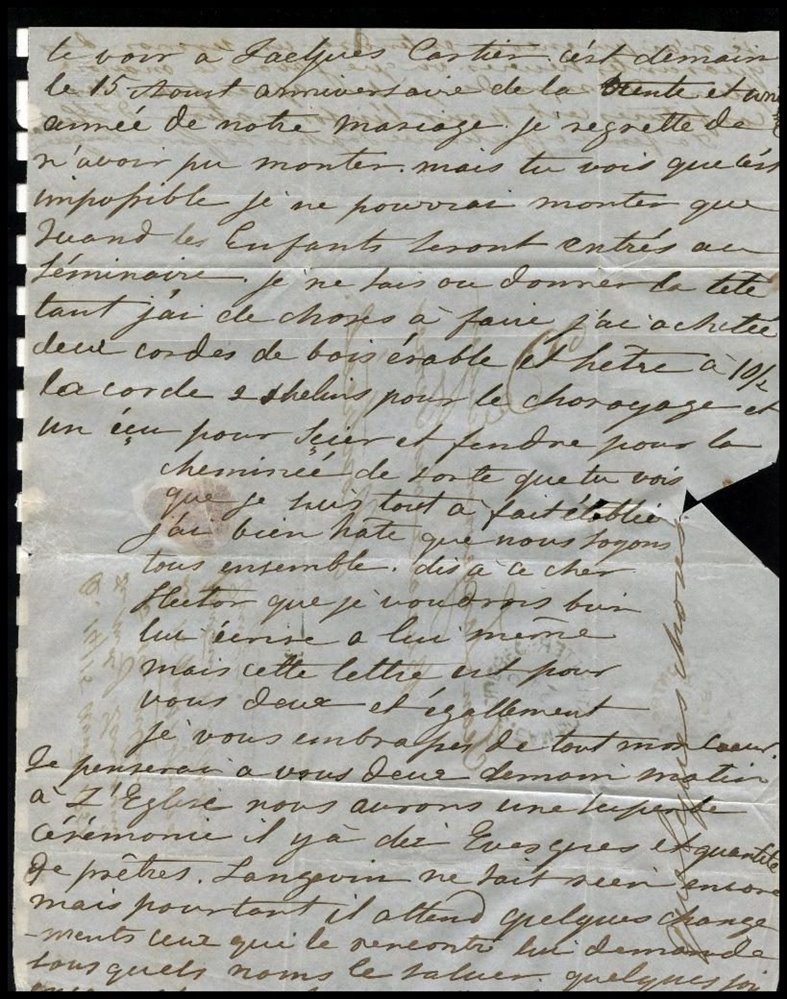 te voir a Jacques Cartier c'est demain
le 15 Aoust anniversaire de la trente et une
année de notre mariage je regrette de
n'avoir pu monter. mais tu vois que c'est
impossible je ne pourrai monter que
quand les Enfants seront entrés au
séminaire. je ne sais ou donner la tete
tant j'ai de choses à faire j'ai achetée
deux cordes de bois érable et hêtre à 10/2
la corde 2 shelins pour le charoyage et
un écu pour scier et fendre pour la
cheminée de sorte que tu vois
que je suis tout à fait établie
j'ai bien hate que nous soyons
tous ensemble. dis à ce cher
Hector que je voudrois bien
lui écrire a lui même
mais cette lettre est pour
vous deux et égallement
je vous embrasses de tout mon coeur.
Je penserai a vous deux demain matin
à L'Eglise nous aurons une superbe
cérémonie il y à dix Evesques et quantité
de prêtres. Langevin ne sait rien encore
mais pourtant il attend quelques change
-ments ceux qui le rencontre lui demande
sous quels noms le saluer quelques
quelques choses